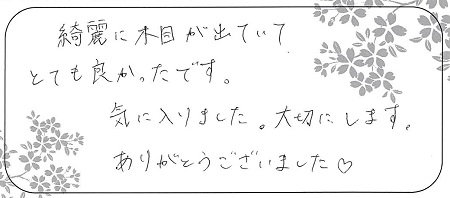 綺麗に木目が出ていて
とても良かったです。
気に入りました。大切にします。
ありがとうございました♡